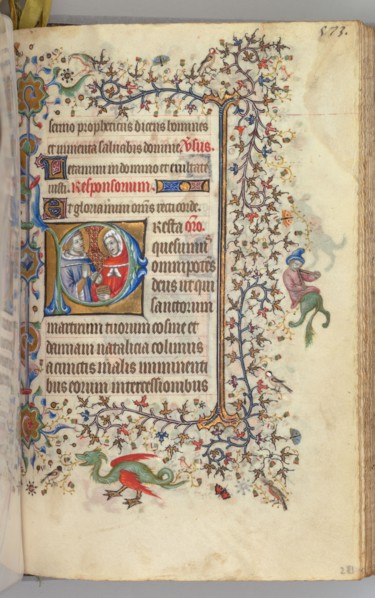 573.
sermo propheticus dicens homines
et iumenta saluabis domine. Vsus.
Letamini in domino et exultate
iusti. Responsorium.
Et gloriamini oms recti corde.
Presta Oro.
quesumus
omnipotens
deus ut qui
sanctorum
martirum tuorum cosme et
damiani natalicia colimus
a cunctis malis imminenti
bus eorum intercessionibus